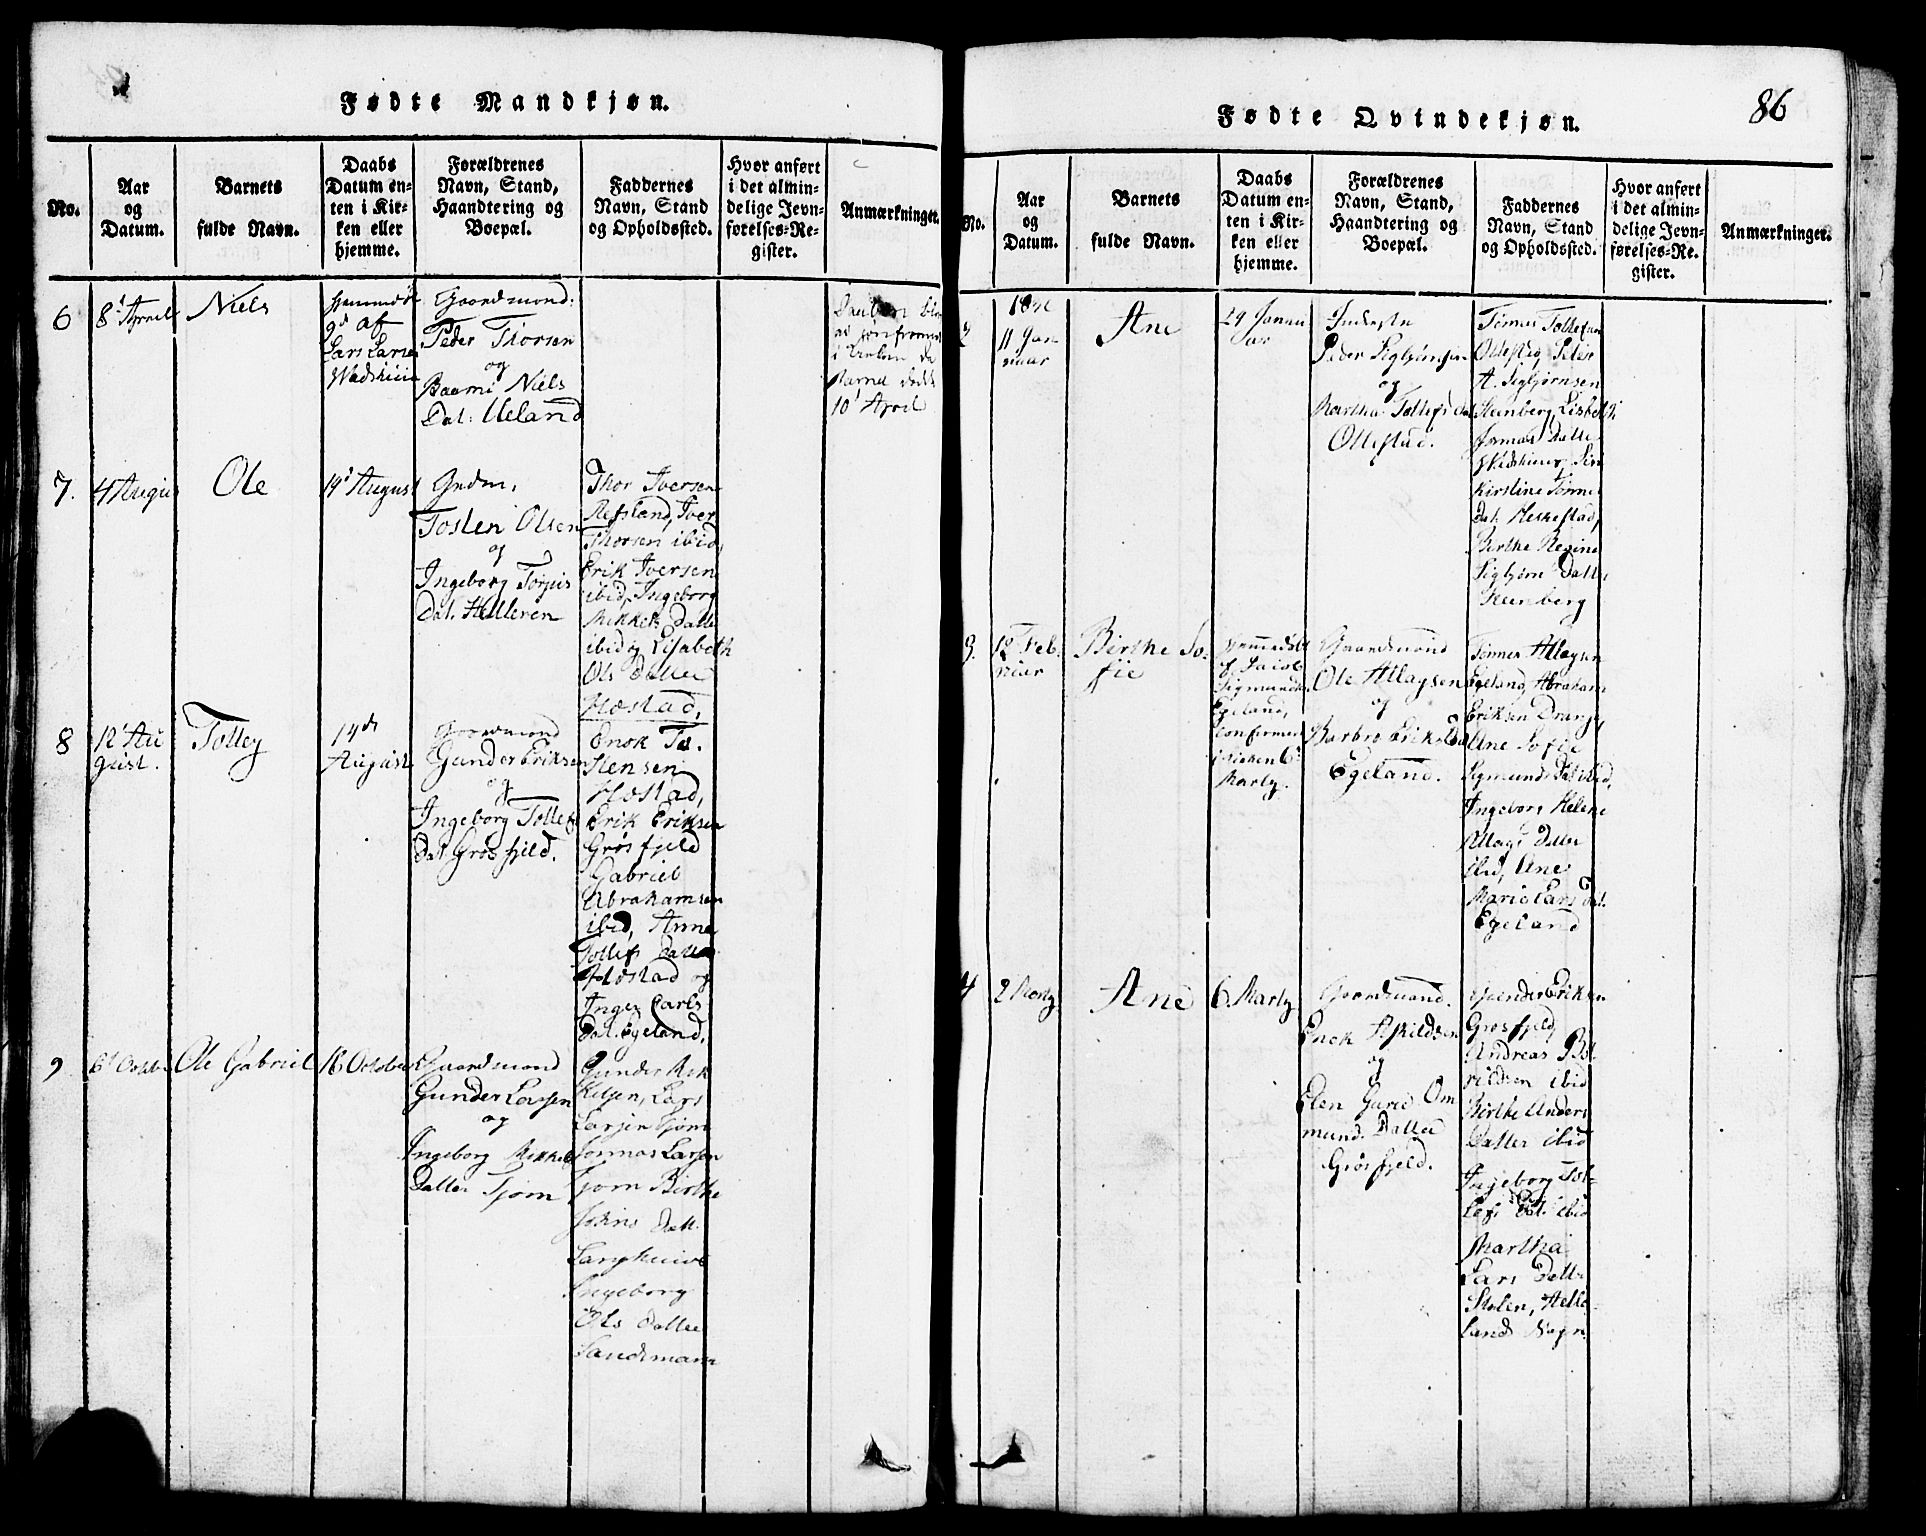 Fødte Mandkjøn.
No.
Aar
og
Datum.
Barnets
fulde Navn.
Daabs
Datum en-
ten i Kir-
ken eller
hjemme.
Forældrenes
Navn, Stand,
Haandtering og
Boepæl.
Faddernes
Navn, Stand
og Opholdssted.
Hvor anført
i det almin-
delige Jevn-
førelses-Re-
gister.
Anmærkninger.
6
8' April
Niels
af
Lars Larsen
Gaardmand:
Peder Thorsen
og
Niels
Dat: Ueland
i Kirken da
Barnet døde
10' April
7.
4 Augu
Ole
14' August
Grdm,
Tosten Olsen
og
Ingeborg Torjus
Dat. Helleren
Thor Iversen
Refsland, Iver
Thorsen ibid,
Erik Iversen
ibid, Ingeborg
Mikkels Datter
ibid og Lisabeth
Ols Datter
Hostad,
8
12' Au
gust.
Tolley
14de
August
Gaardmand
Gunder Eriksen
og
Ingeborg Tollefs
Dat. Grøsfjeld.
Enok To.
stensen
Hostad,
Erik Eriksen
Grøsfjeld
Gabriel
Abrahamsen
ibid, Anne
Tollefs Datter
Hostad og
Inger Carls
Dat. Egeland.
9
6' Octob
Ole Gabriel
16 October
Gaardmand
Gunder Larsen
og
Ingeborg Mikkels
Datter Tjørn
Gunder Mik
kelsen, Lars
Larsen Tjørn
Jonnas Larsen
Tjørn Birthe
Datt.
Ingeborg
Ols Datter
Sandsmarr
Fødte Qvindekjøn.
86
No.
Aar
og
Datum.
Barnets
fulde Navn.
Daabs
Datum en-
ten i Kir-
ken eller
hjemme.
Forældrenes
Navn, Stand,
Haandtering og
Boepæl.
Faddernes
Navn, Stand
og Opholdssted.
Hvor anført
i det almin-
delige Jevn-
førelses-Re-
gister.
Anmærkninger.
2
11 Jan
uaar
Ane
29 Janu
ar
Inderste
Peder Sigbjørnsen
og
Martha Tollefs Dat
Ollestad.
Tønnes Tollefsen
Ollestad, Peter
A. Sigbjørnsen
Steenberg, Lisbeth
Jonnas Datter
Kirstine Tønnes
Dat. Heskestad,
Birthe Regine
Sigbjørns Datter
Steenberg
3.
12 Feb.
ruar
Birthe So-
fie
af Jacob
Sigmundsen
Egeland,
confirmer
i Kirken 6'
Marty.
Gaardmand
Ole Atlaysen
og
Barbro Eriks Dat
Egeland.
Tønnes Atlaysen
Egeland, Abraham
Eriksen Drangs,
Ane Sofie
Sigmunds Dat ibid,
Ingeborg Helene
Atlags Datter
ibid, Ane
Marie Lars Dat.
Egeland
4
2 Marty
Ane
6. Marty
Gaardmand.
Enok Askildsen
og
Elen Gurid Om
mund. Datter
Grøsfjeld.
Gunder Eriksen
Grøsfjeld,
Andreas Bot-
hildsen ibid
Birthe Anders
Datter ibid
Ingeborg Tol-
lefs Dat. ibid
Martha
Lars Datt.
Stolen, Helle-
lands Sogn